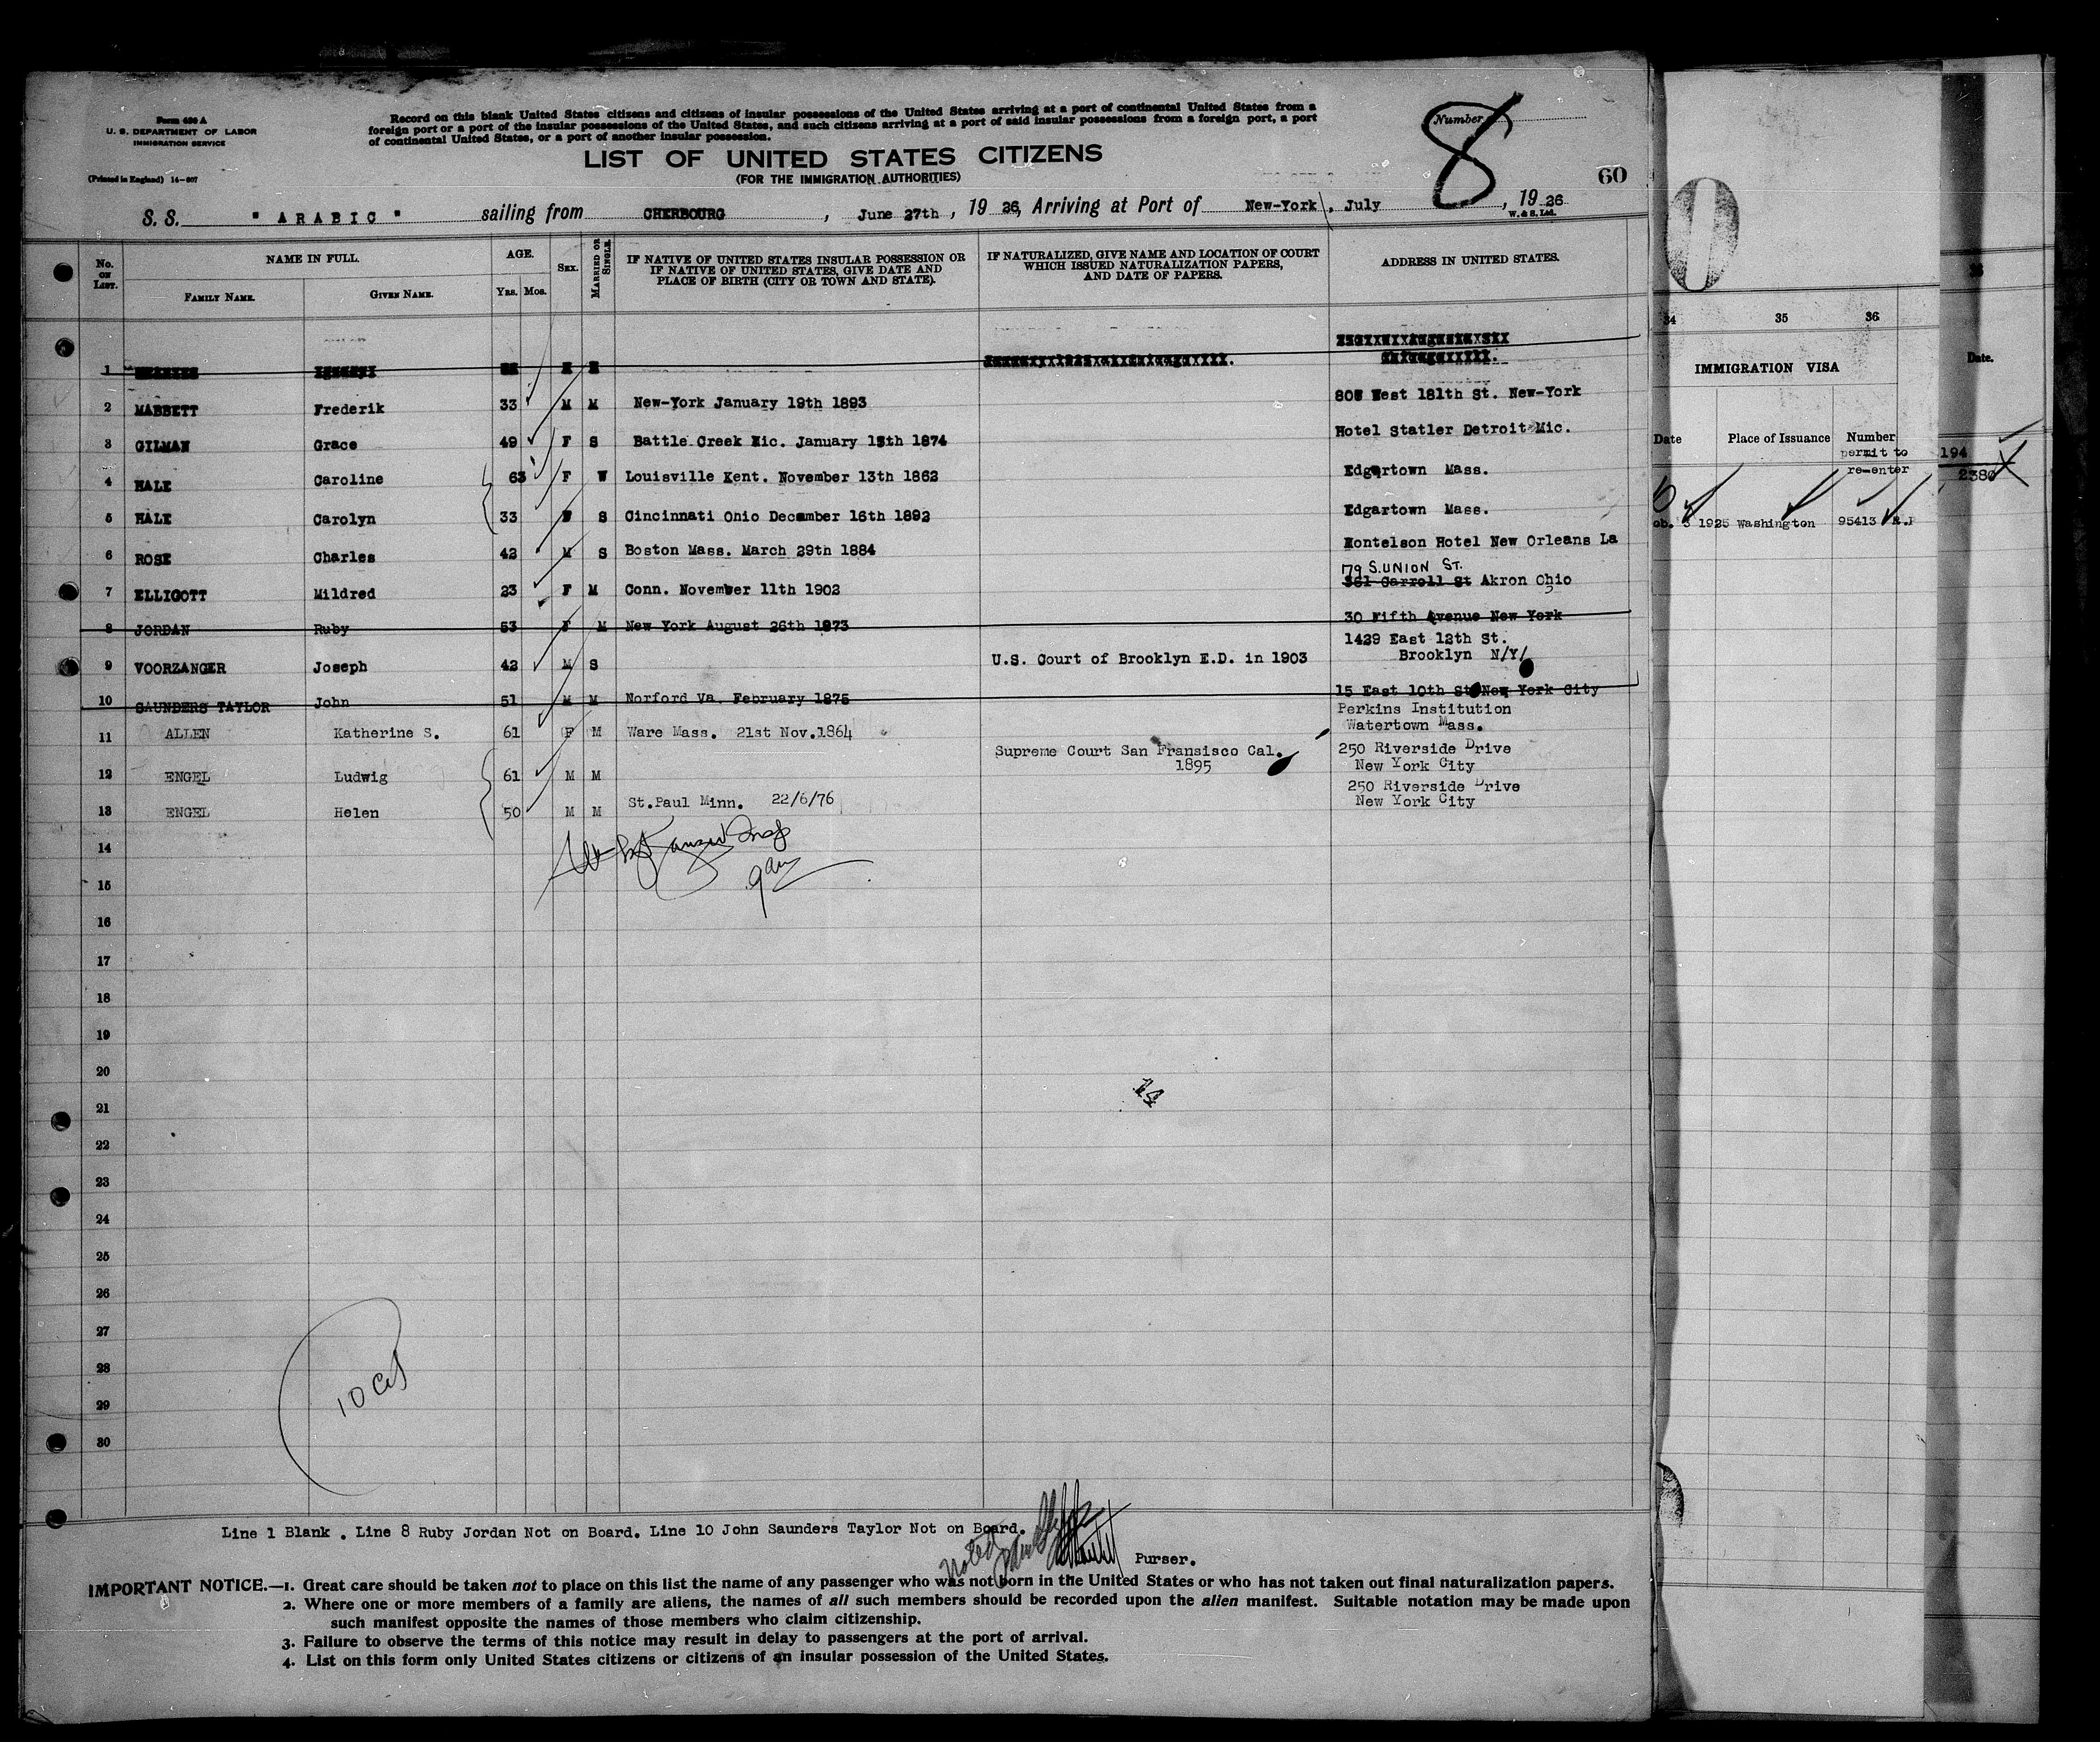 Form 630 A
U. S. DEPARTMENT OF LABOR
IMMIGRATION SERVICE
(Printed in England) 14—607
Record on this blank United States citizens and citizens of insular possessions of the United States arriving at a port of continental United States from a
foreign port or a port of the insular possessions of the United States, and such citizens arriving at a port of said insular possessions from a foreign port, a port
of continental United States, or a port of another insular possession.
LIST OF UNITED STATES CITIZENS
(FOR THE IMMIGRATION AUTHORITIES)
Number 8
60
S.S. " ARABIC " sailing from CHERBOURG , June 27th , 19 26, Arriving at Port of New-York , July , 19 26
W. & S. Ltd.
No. ON LIST. NAME IN FULL. AGE. SEX. MARRIED OR SINGLE. IF NATIVE OF UNITED STATES INSULAR POSSESSION OR IF NATIVE OF UNITED STATES, GIVE DATE AND PLACE OF BIRTH (CITY OR TOWN AND STATE). IF NATURALIZED, GIVE NAME AND LOCATION OF COURT WHICH ISSUED NATURALIZATION PAPERS, AND DATE OF PAPERS. ADDRESS IN UNITED STATES.
FAMILY NAME. GIVEN NAME. YRS. MOS.
1
2 MABBETT Frederik 33 M M New-York January 19th 1893 West 181th St. New-York
3 GILMAN Grace 49 F S Battle Creek Mic. January 15th 1874 Hotel Statler Detroit Mic.
4 HALE Caroline 63 F W Louisville Kent. November 13th 1862 Edgartown Mass.
5 HALE Carolyn 33 F S Cincinnati Ohio December 16th 1892 Edgartown Mass.
6 ROSE Charles 42 M S Boston Mass. March 29th 1884 Montelson Hotel New Orleans La
7 ELLIGOTT Mildred 23 F M Conn. November 11th 1902 179 S. UNION ST. 361 Carroll St Akron Ohio
8 JORDAN Ruby 53 F M New York August 26th 1873 30 Fifth Avenue New York
9 VOORZANGER Joseph 42 M S U.S. Court of Brooklyn E.D. in 1903 1429 East 12th St. Brooklyn N/Y/
10 SAUNDERS TAYLOR John 51 M M Norford Va. February 1875 15 East 10th St New York City
11 ALLEN Katherine S. 61 F M Ware Mass. 21st Nov.1864 Perkins Institution Watertown Mass.
12 ENGEL Ludwig 61 M M Supreme Court San Fransisco Cal. 1895 250 Riverside Drive New York City
13 ENGEL Helen 50 M M St.Paul Minn. 22/6/76 250 Riverside Drive New York City
14
15
16
17
18
19
20
21
22
23
24
25
26
27
28
29
30
14
Line 1 Blank . Line 8 Ruby Jordan Not on Board. Line 10 John Saunders Taylor Not on Board.
Noted
Purser.
IMPORTANT NOTICE.—1. Great care should be taken not to place on this list the name of any passenger who was not born in the United States or who has not taken out final naturalization papers.
2. Where one or more members of a family are aliens, the names of all such members should be recorded upon the alien manifest. Suitable notation may be made upon
such manifest opposite the names of those members who claim citizenship.
3. Failure to observe the terms of this notice may result in delay to passengers at the port of arrival.
4. List on this form only United States citizens or citizens of an insular possession of the United States.
34 35 36
IMMIGRATION VISA
Date Place of Issuance Number
permit to
re-enter
1925 Washington 95413 R.P
Date.
194
2380